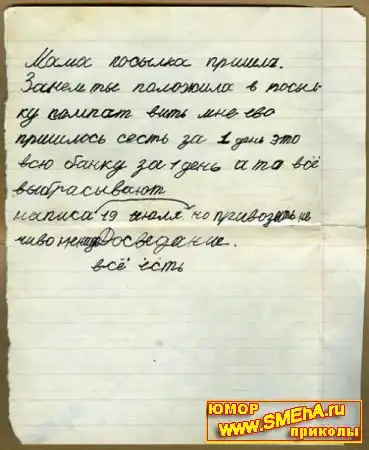 Мама посылка пришла.
Занем ты положила в посыл-
ку сомпат вить мне ево
пришлось сесть за 1 день это
всю банку за 1 день а то всё
выбрасывают
написа 19 июля но привозить не
чиво Досведание.
всё есть
ЮМОР
www.SMEhA.ru
приколы